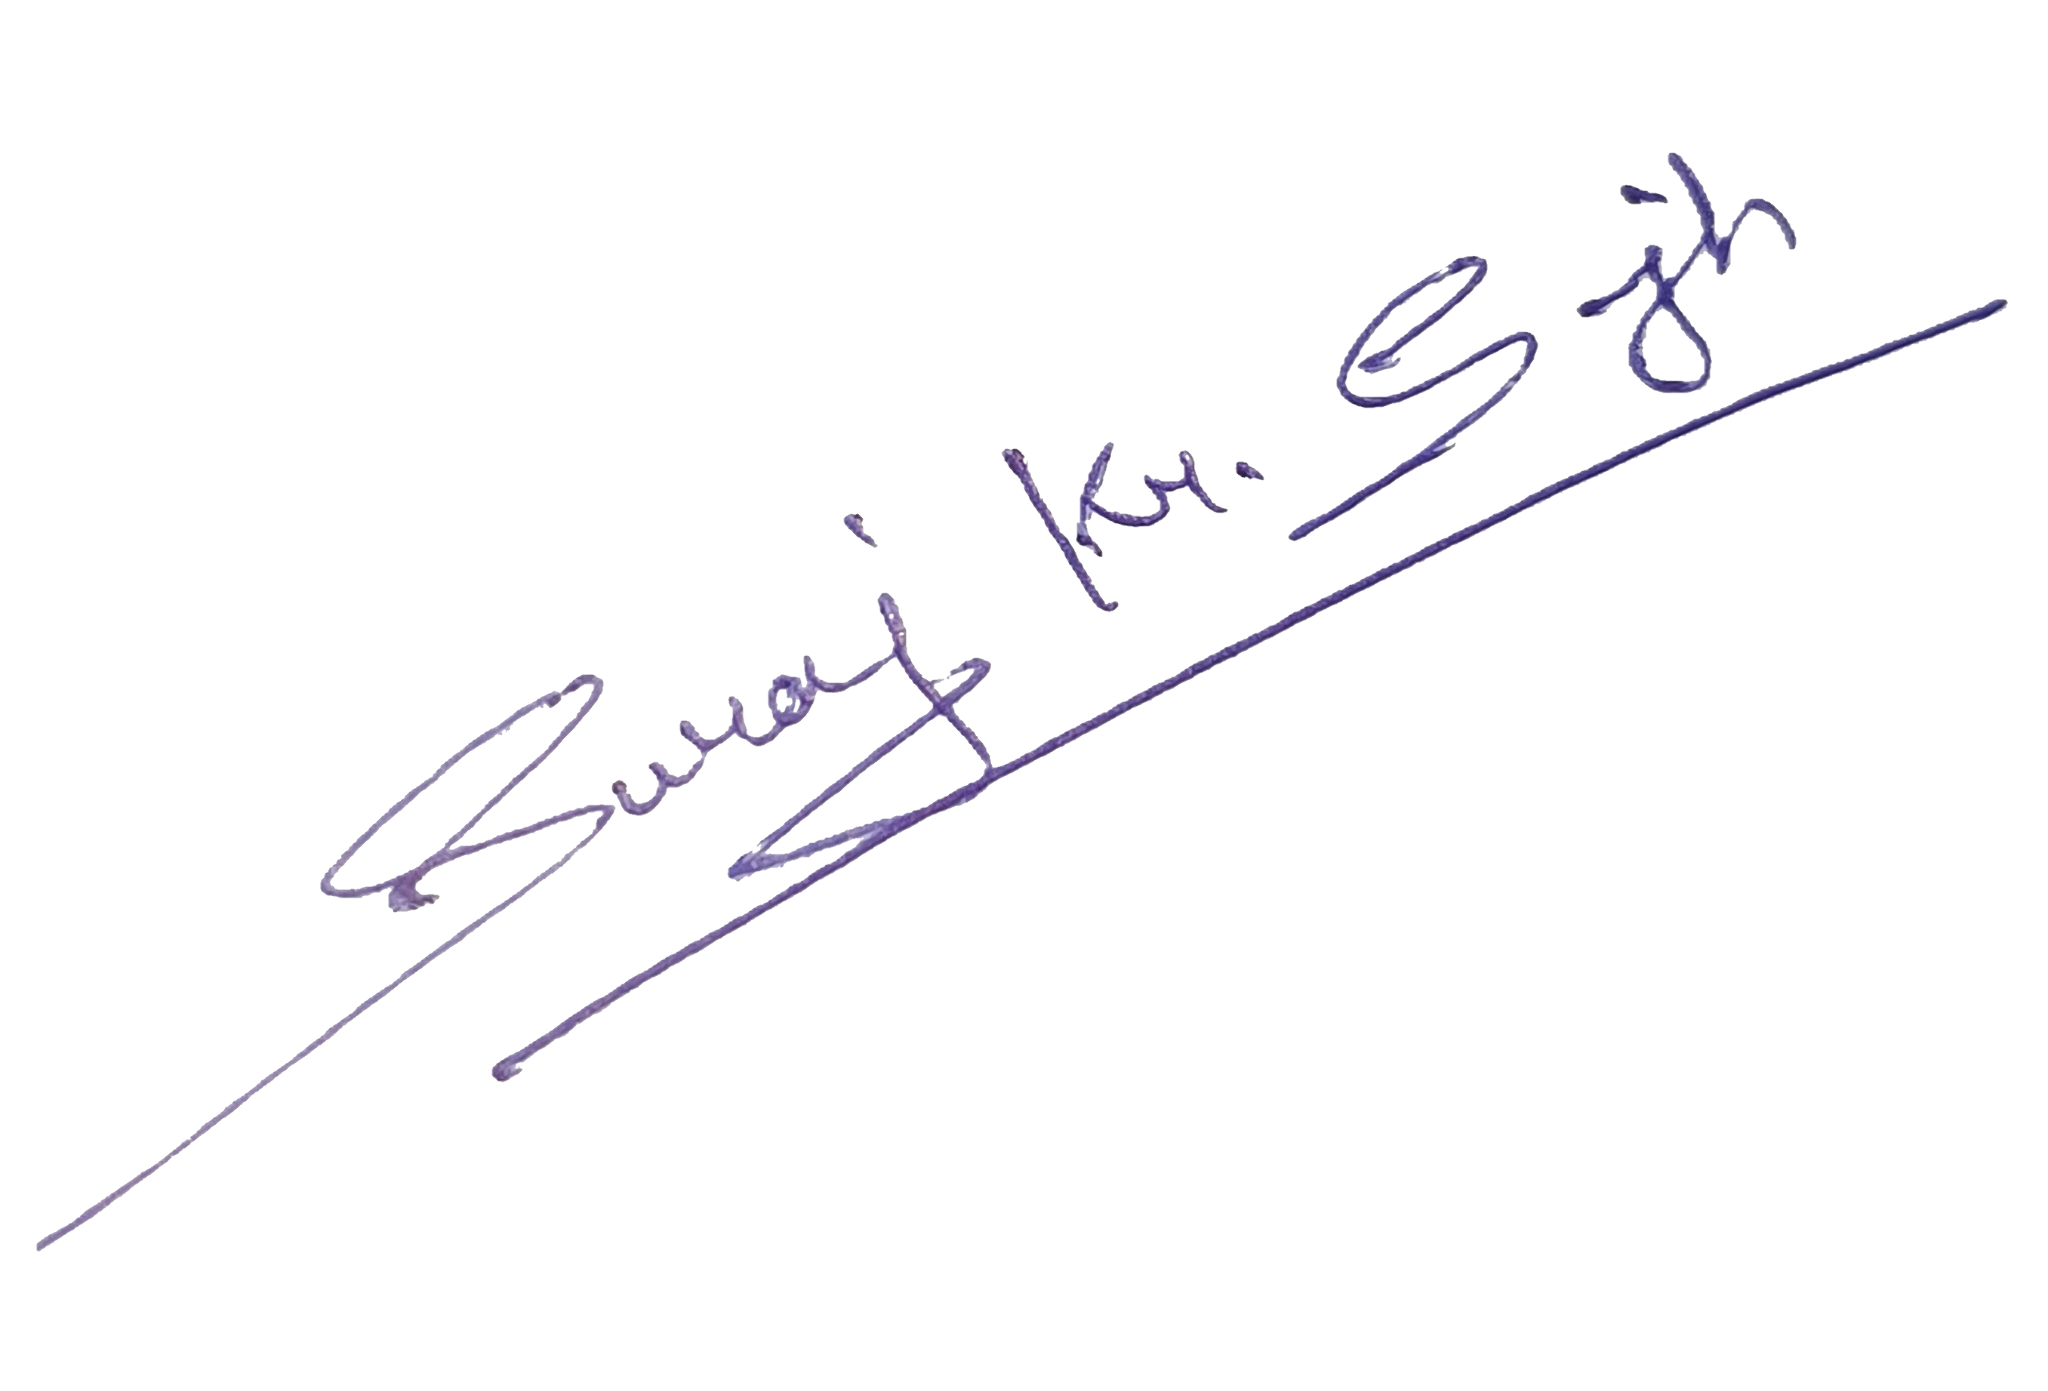 Suraj Kr. Singh